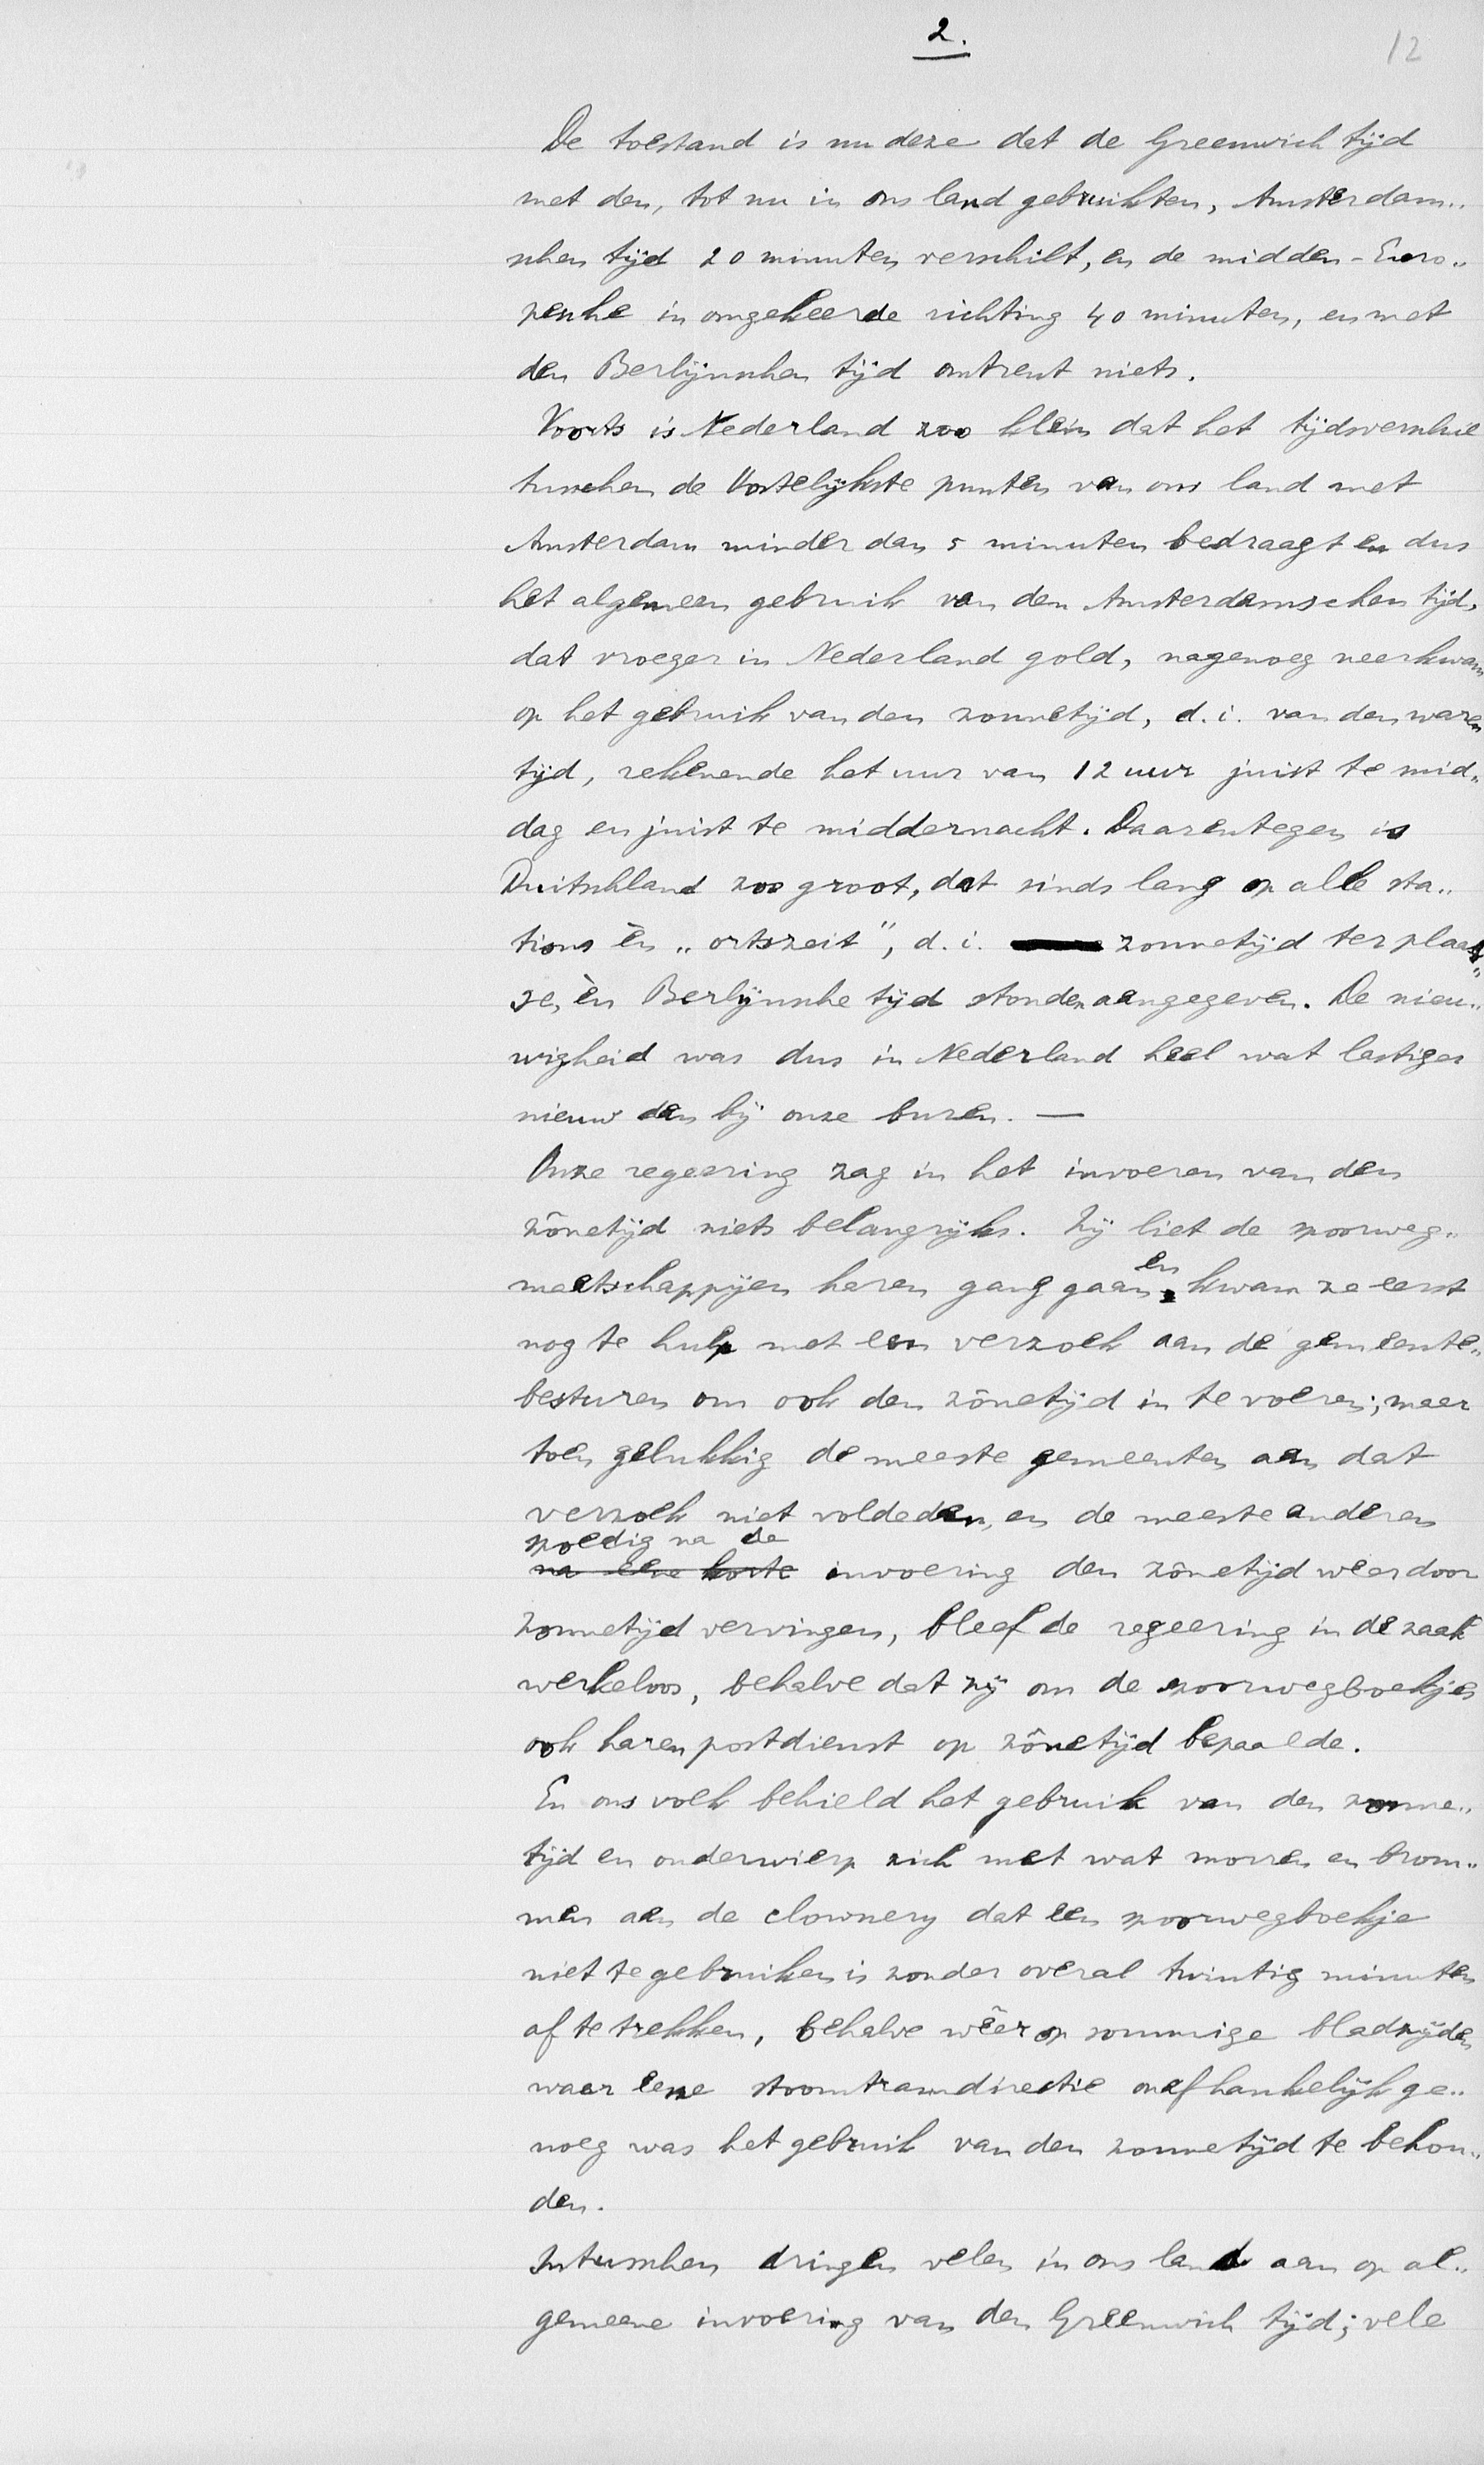 2.
12
De toestand is nu deze dat de Greenwich tijd
met den, tot nu in ons land gebruikten, Amsterdam„
schen tijd 20 minuten verschilt, en de midden-Euro„
pesche in omgekeerde richting 40 minuten, en met
den Berlijnschen tijd omtrent niets.
Voorts is Nederland zoo klein dat het tijdsverschil
tusschen de Oostelijkste punten van ons land met
Amsterdam minder dan 5 minuten bedraagt en dus
het algemeen gebruik van den Amsterdamschen tijd,
dat vroeger in Nederland gold, nagenoeg neerkwam
op het gebruik van den zonnetijd, d.i. van den waren
tijd, rekenende het uur van 12 uur juist te mid„
dag en juist te middernacht. Daarentegen is
Duitschland zoo groot, dat sinds lang op alle sta„
tions èn „ortszeit", d.i. zonnetijd ter plaat„
se, èn Berlijnsche tijd stonden aangegeven. De nieu„
wigheid was dus in Nederland heel wat lastiger
nieuw dan bij onze buren. —
Onze regeering zag in het invoeren van den
zônetijd niets belangrijks. Zij liet de spoorweg„
maatschappijen haren gang gaan en kwam ze eerst
nog te hulp met een verzoek aan de gemeente„
besturen om ook den zônetijd in te voeren; maar
toen gelukkig de meeste gemeenten aan dat
verzoek niet voldeden, en de meeste anderen
spoedig na de
na eene korte invoering den zônetijd weer door
zonnetijd vervingen, bleef de regeering in de zaak
werkeloos, behalve dat zij om de spoorwegboekjes
ook haren postdienst op zônetijd bepaalde.
En ons volk behield het gebruik van den zonne„
tijd en onderwierp zich met wat morren en brom„
men aan de clownery dat een spoorwegboekje
niet te gebruiken is zonder overal twintig minuten
af te trekken, behalve wêer op sommige bladzijden
waar eene stoomtramdirectie onafhankelijk ge„
noeg was het gebruik van den zonnetijd te behou„
den.
Intusschen dringen velen in ons land aan op al„
gemeene invoering van den Greenwich tijd; vele